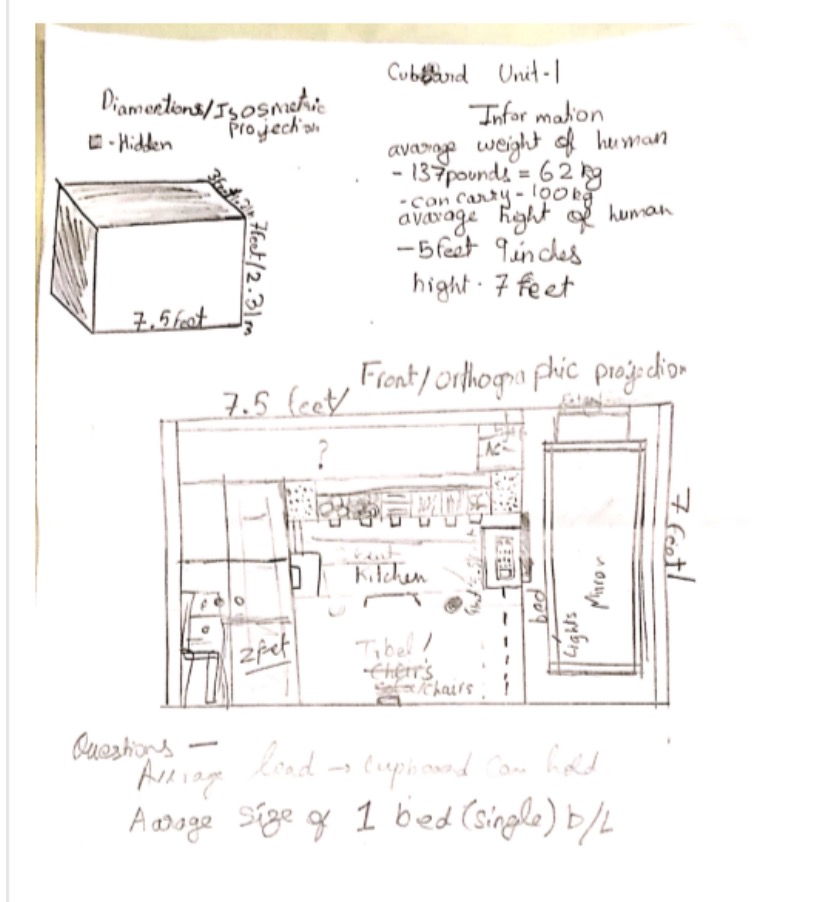 Cubboard Unit-1
Diamentions/Isosmetric
projection
- Hidden
Information
avarage weight of human
- 137pounds = 62 kg
- can carry - 100kg
avarage hight of human
- 5feet 9inches
hight - 7 feet
3feet
7feet/2.31m
7.5 feet
Front/orthographic projection
7.5 feet/
?
AC
7 feet/
Kitchen
bed
Lights
Mirror
2feet
Tabel/
Chairs
Sofa/chairs
Questions -
Avriage load → cupboard can hold
Aarage size of 1 bed (single) b/L